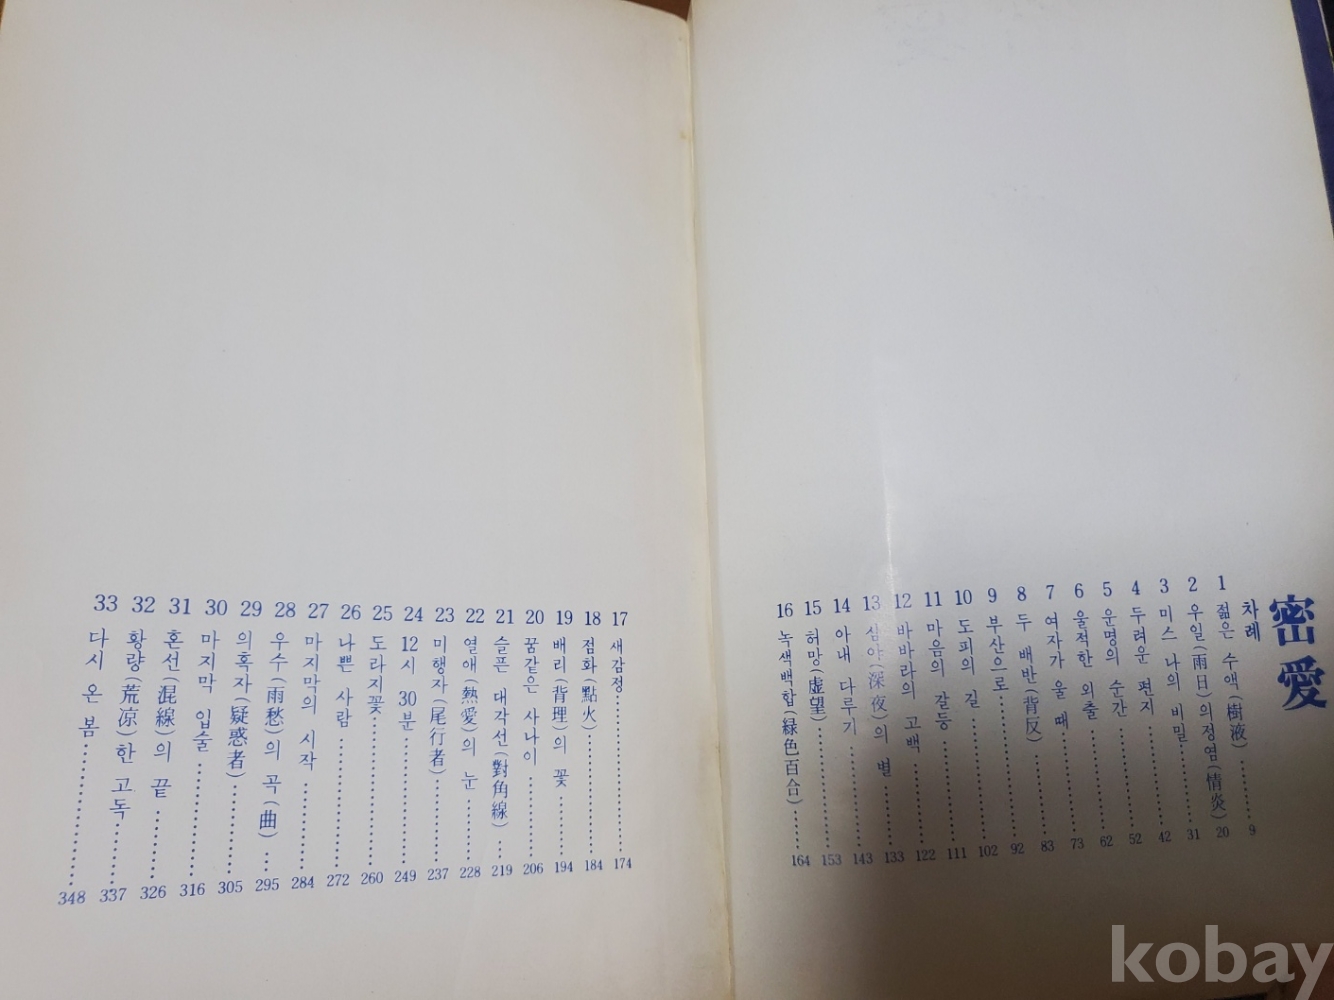 密愛
차례
1 젊은 수액(樹液) 9
2 우일(雨日)의 정염(情炎) 20
3 미스 나의 비밀 31
4 두려운 편지 42
5 운명의 순간 52
6 울적한 외출 62
7 여자가 울 때 73
8 두 배반(背反) 83
9 부산으로 92
10 도피의 길 102
11 마음의 갈등 111
12 바바라의 고백 122
13 심야(深夜)의 별 133
14 아내 다루기 143
15 허망(虛望) 153
16 녹색백합(綠色百合) 164
17 새감정 174
18 점화(點火) 184
19 배리(背理)의 꽃 194
20 꿈같은 사나이 206
21 슬픈 대각선(對角線) 219
22 열애(熱愛)의 눈 228
23 미행자(尾行者) 237
24 12시 30분 249
25 도라지꽃 260
26 나쁜 사람 272
27 마지막의 시작 284
28 우수(雨愁)의 곡(曲) 295
29 의혹자(疑惑者) 305
30 마지막 입술 316
31 혼선(混線)의 끝 326
32 황량(荒凉)한 고독 337
33 다시 온 봄 348
kobay